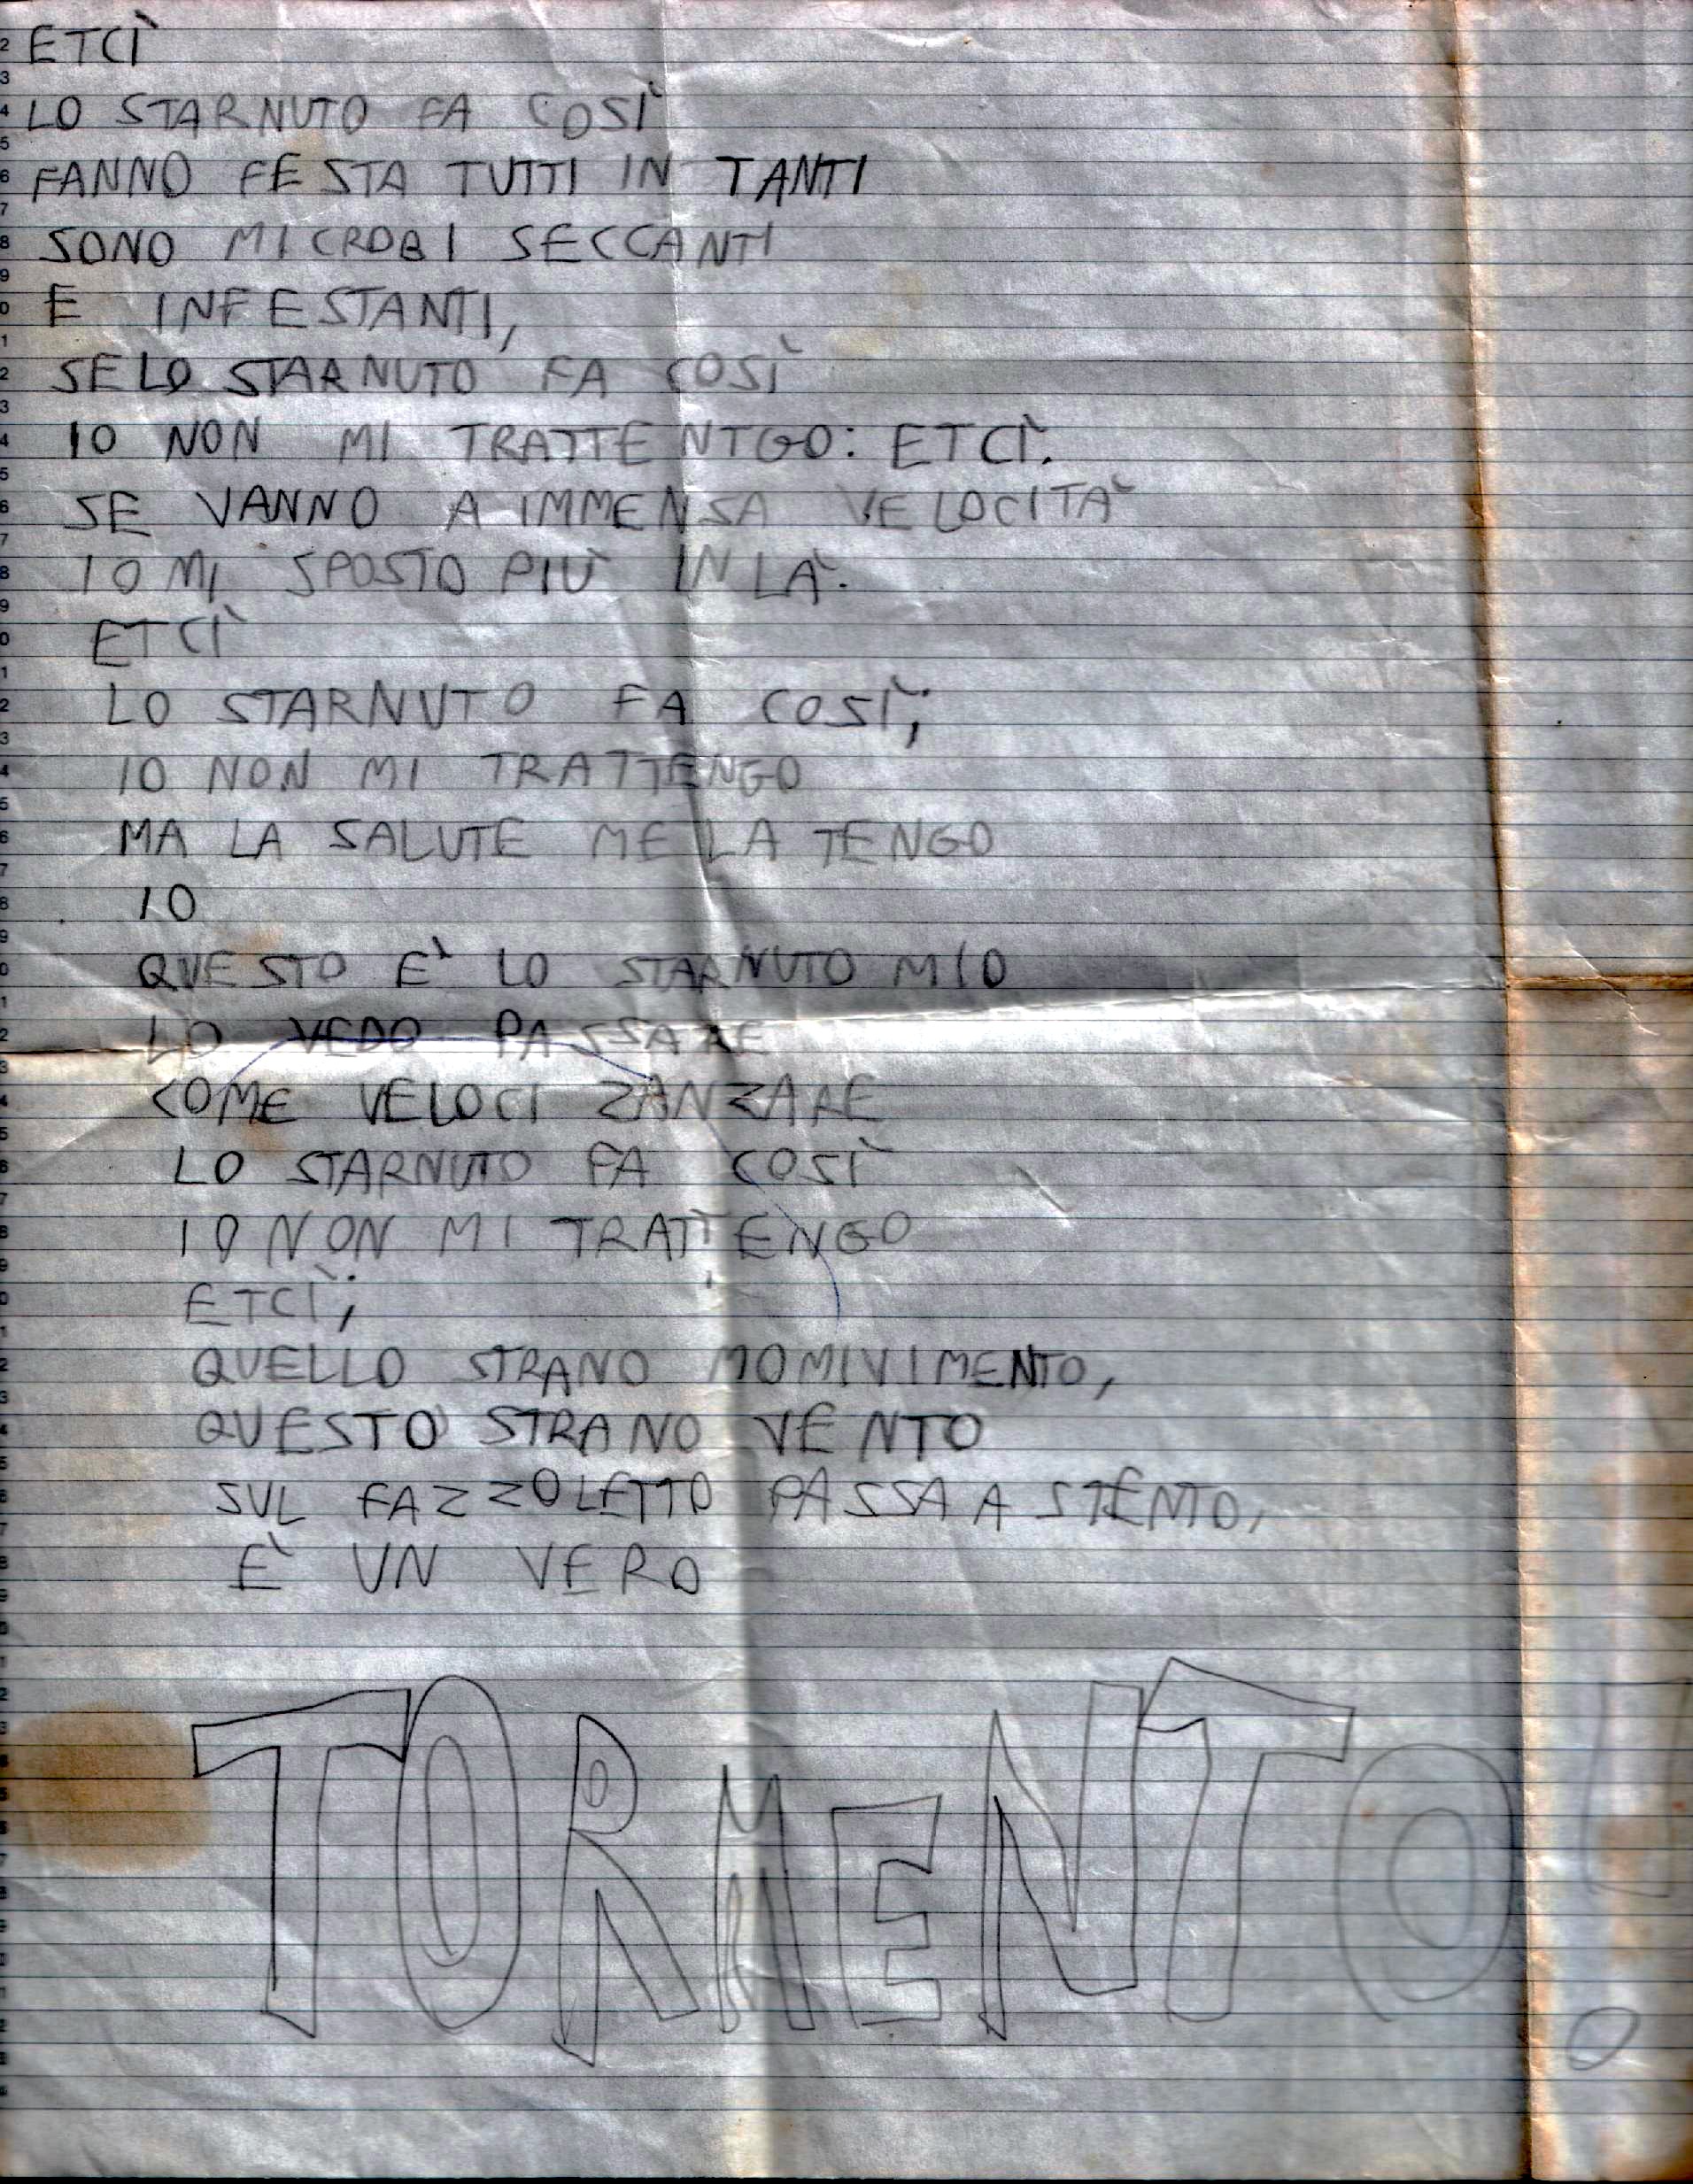 ETCÌ
LO STARNUTO FA COSÌ
FANNO FESTA TUTTI IN TANTI
SONO MICROBI SECCANTI
E INFESTANTI,
SE LO STARNUTO FA COSÌ
IO NON MI TRATTENTGO: ETCÌ.
SE VANNO A IMMENSA VELOCITÀ
IO MI SPOSTO PIÙ IN LÀ.
ETCÌ
LO STARNUTO FA COSÌ;
IO NON MI TRATTENGO
MA LA SALUTE ME LA TENGO
IO
QUESTO È LO STARNUTO MIO
LO VEDO PASSARE
COME VELOCI ZANZARE
LO STARNUTO FA COSÌ
IO NON MI TRATTENGO
ETCÌ;
QUELLO STRANO MOMIVIMENTO,
QUESTO STRANO VENTO
SUL FAZZOLETTO PASSA A STENTO,
È UN VERO
TORMENTO!